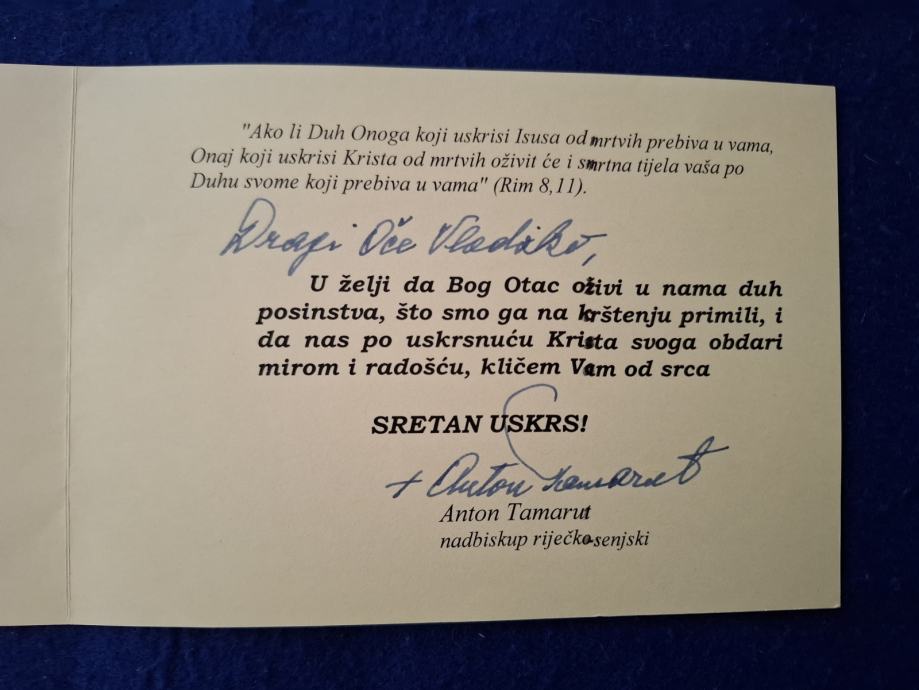 "Ako li Duh Onoga koji uskrisi Isusa od mrtvih prebiva u vama,
Onaj koji uskrisi Krista od mrtvih oživit će i smrtna tijela vaša po
Duhu svome koji prebiva u vama" (Rim 8,11).
Dragi Oče Vladiko,
U želji da Bog Otac oživi u nama duh
posinstva, što smo ga na krštenju primili, i
da nas po uskrsnuću Krista svoga obdari
mirom i radošću, kličem Vam od srca
SRETAN USKRS!
+ Anton Tamarut
Anton Tamarut
nadbiskup riječko-senjski